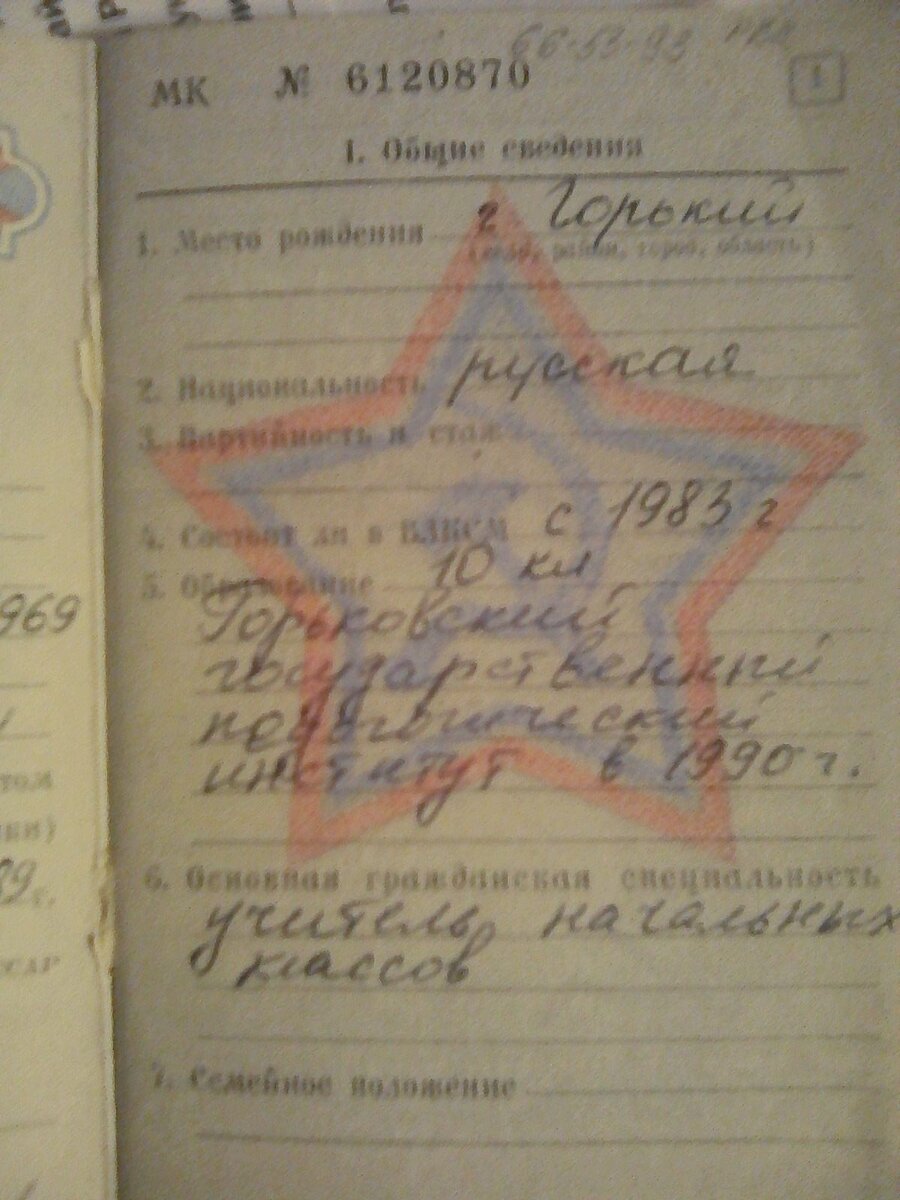 66-53-93
МК № 6120870
1
I. Общие сведения
1. Место рождения г Горький
(село, район, город, область)
2. Национальность русская
3. Партийность и стаж
4. Состоит ли в ВЛКСМ с 1983 г
5. Образование 10 кл
Горьковский
государственный
педагогический
институт в 1990 г.
6. Основная гражданская специальность
учитель начальных
классов
7. Семейное положение
969
том
ки)
89 г.
сар